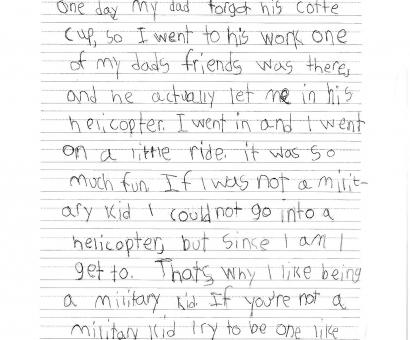 One day my dad forgot his cotte
cup, so I went to his work one
of my dads friends was there,
and he actually let me in his
helicopter. I went in and I went
on a little ride. it was so
much fun. If I was not a milit-
ary Kid I could not go into a
helicopter, but since I am I
get to. Thats why I like being
a military Kid. If you're not a
military Kid try to be one like